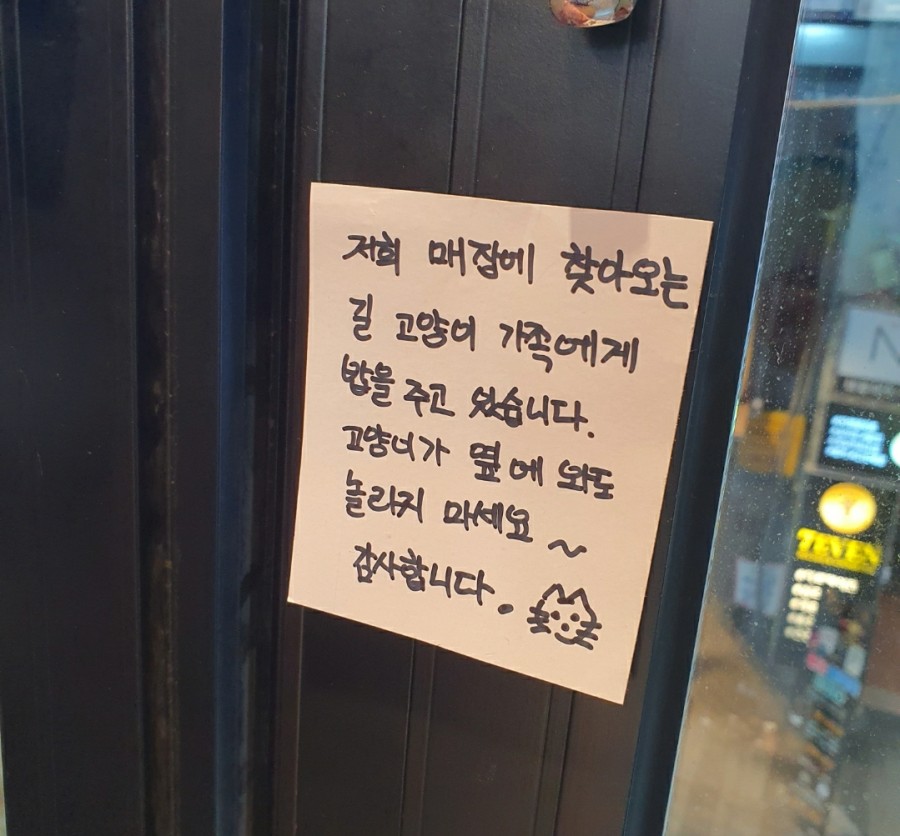 저희 매장에 찾아오는
길 고양이 가족에게
밥을 주고 있습니다.
고양이가 옆에 와도
놀라지 마세요~
감사합니다.
7EVEN